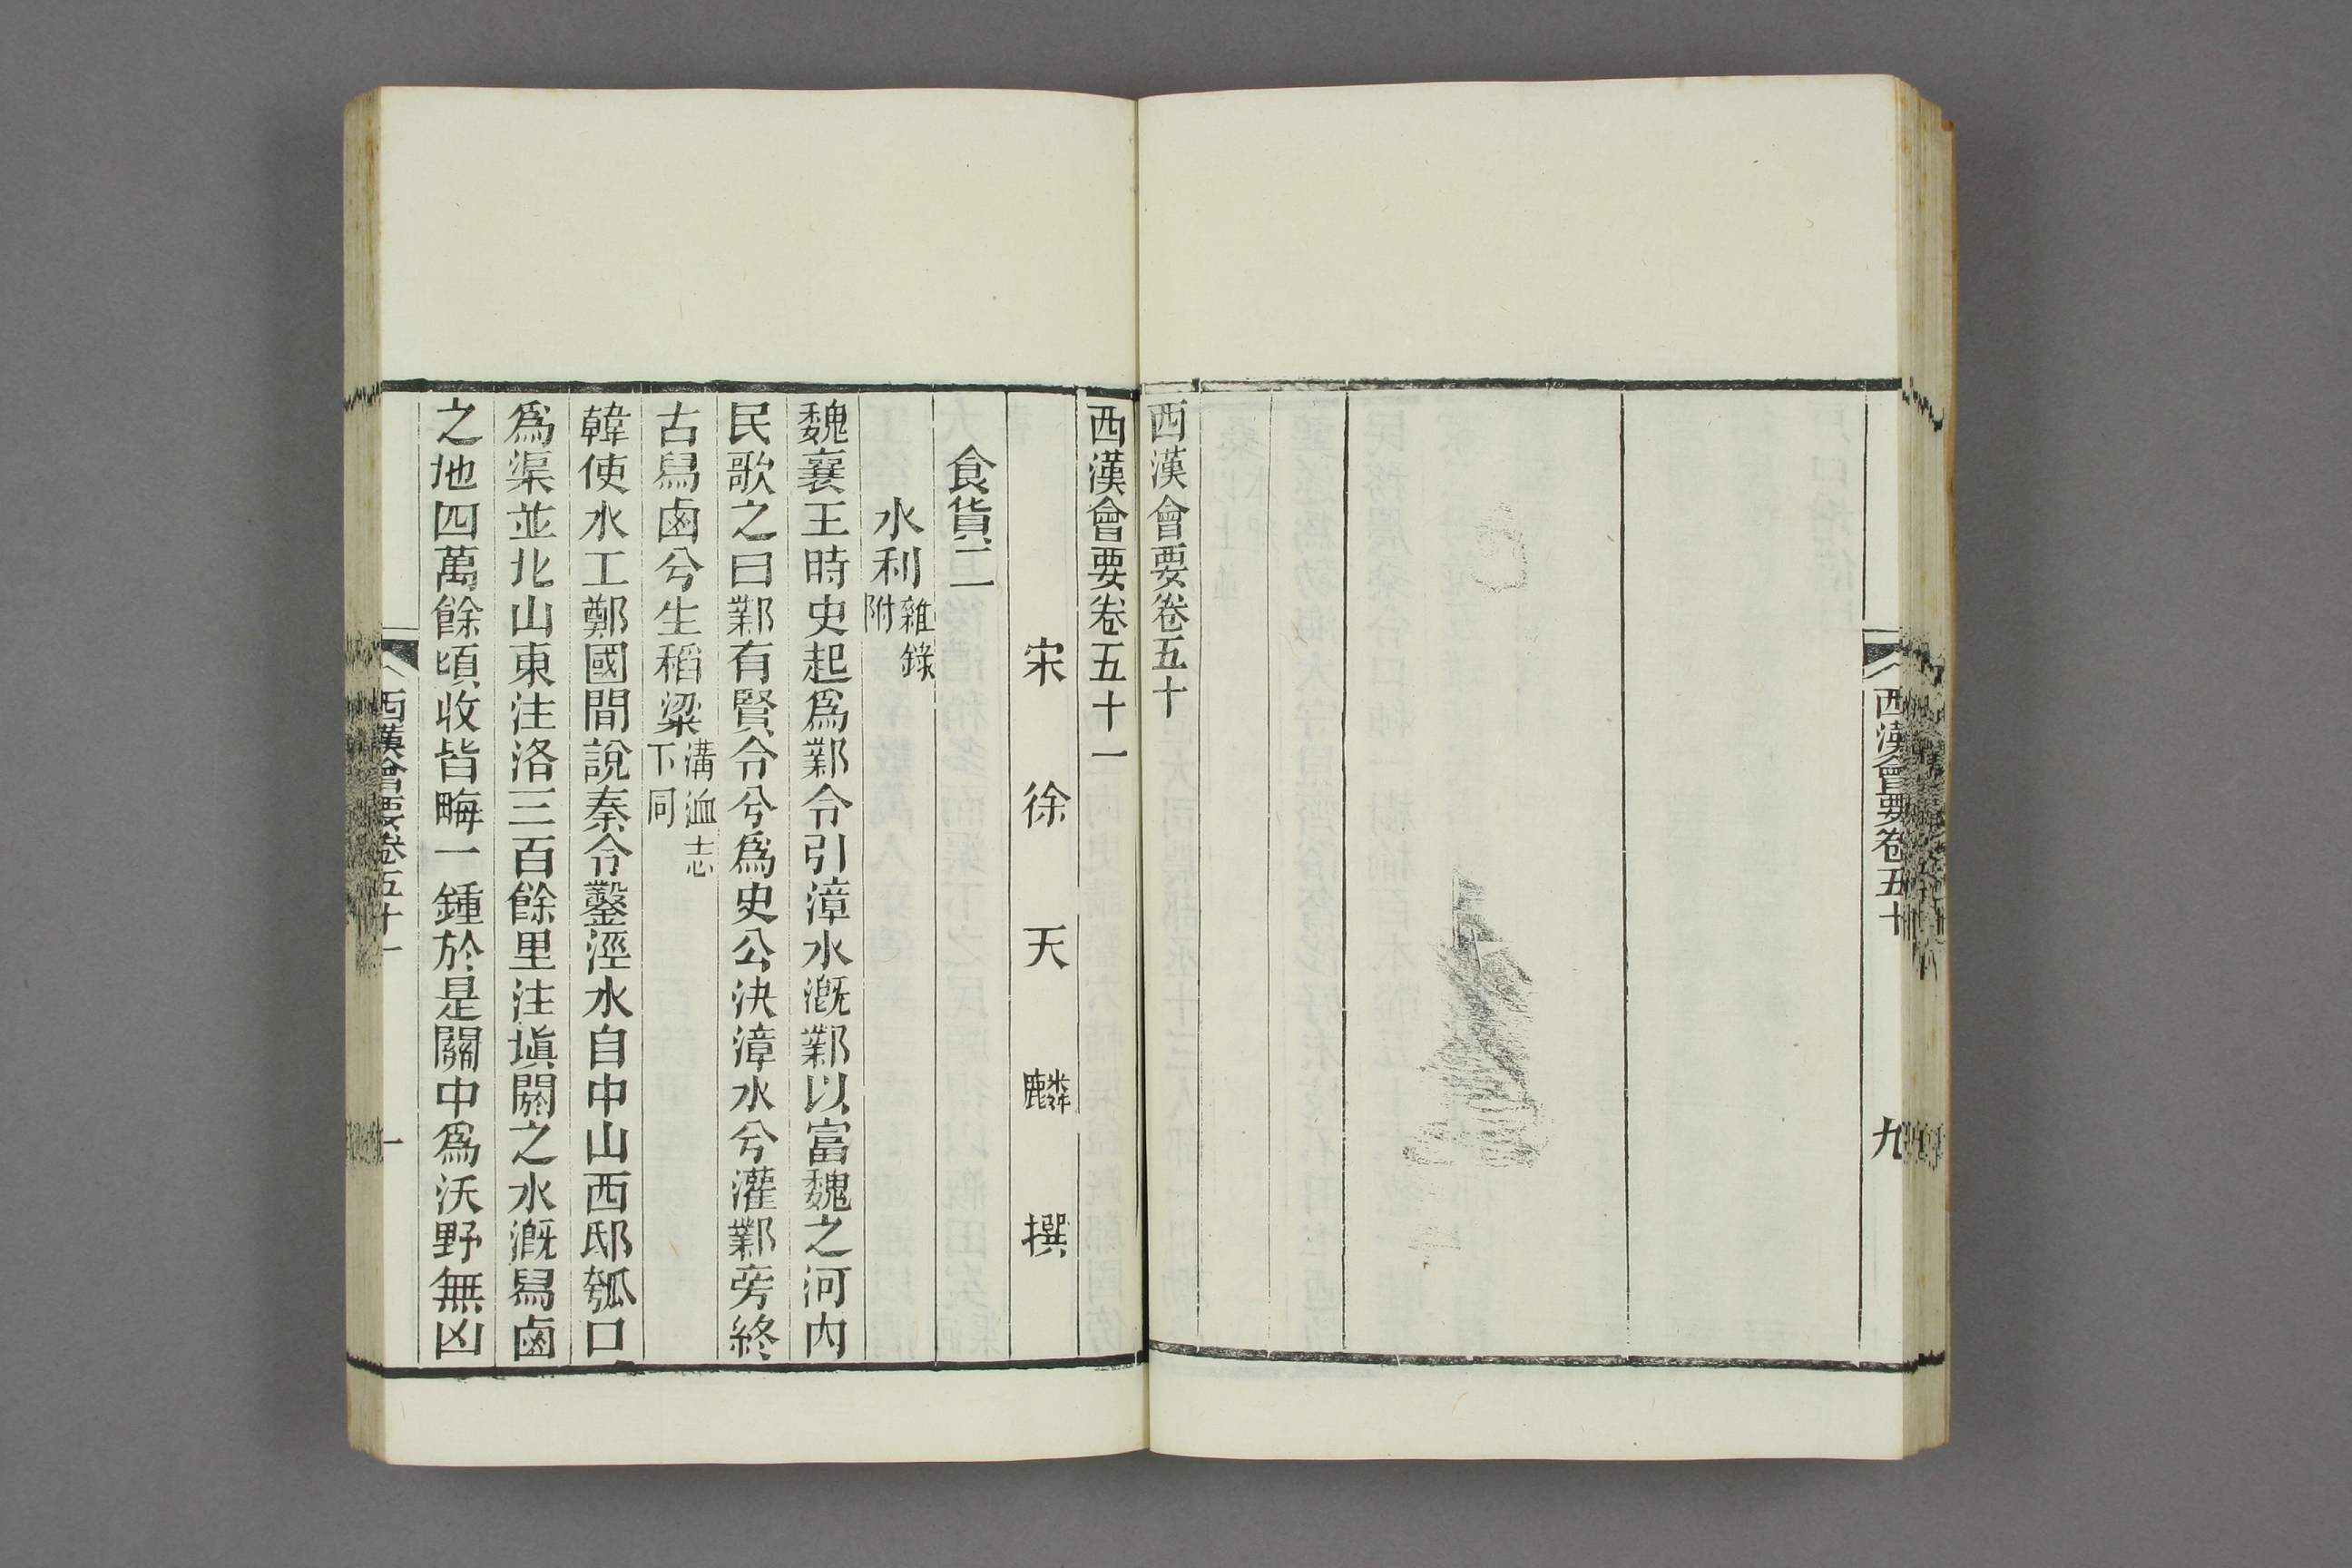 西漢會要卷五十
九
西漢會要卷五十
西漢會要卷五十一
宋徐天麟撰
食貨二
水利雜錄附
魏襄王時史起爲鄴令引漳水漑鄴以富魏之河內
民歌之曰鄴有賢令兮爲史公決漳水兮灌鄴旁終
古舄鹵兮生稻粱溝洫志下同
韓使水工鄭國間說秦令鑿涇水自中山西邸瓠口
爲渠並北山東注洛三百餘里注塡閼之水漑舄鹵
之地四萬餘頃收皆畮一鍾於是關中爲沃野無凶
西漢會要卷五十一
一